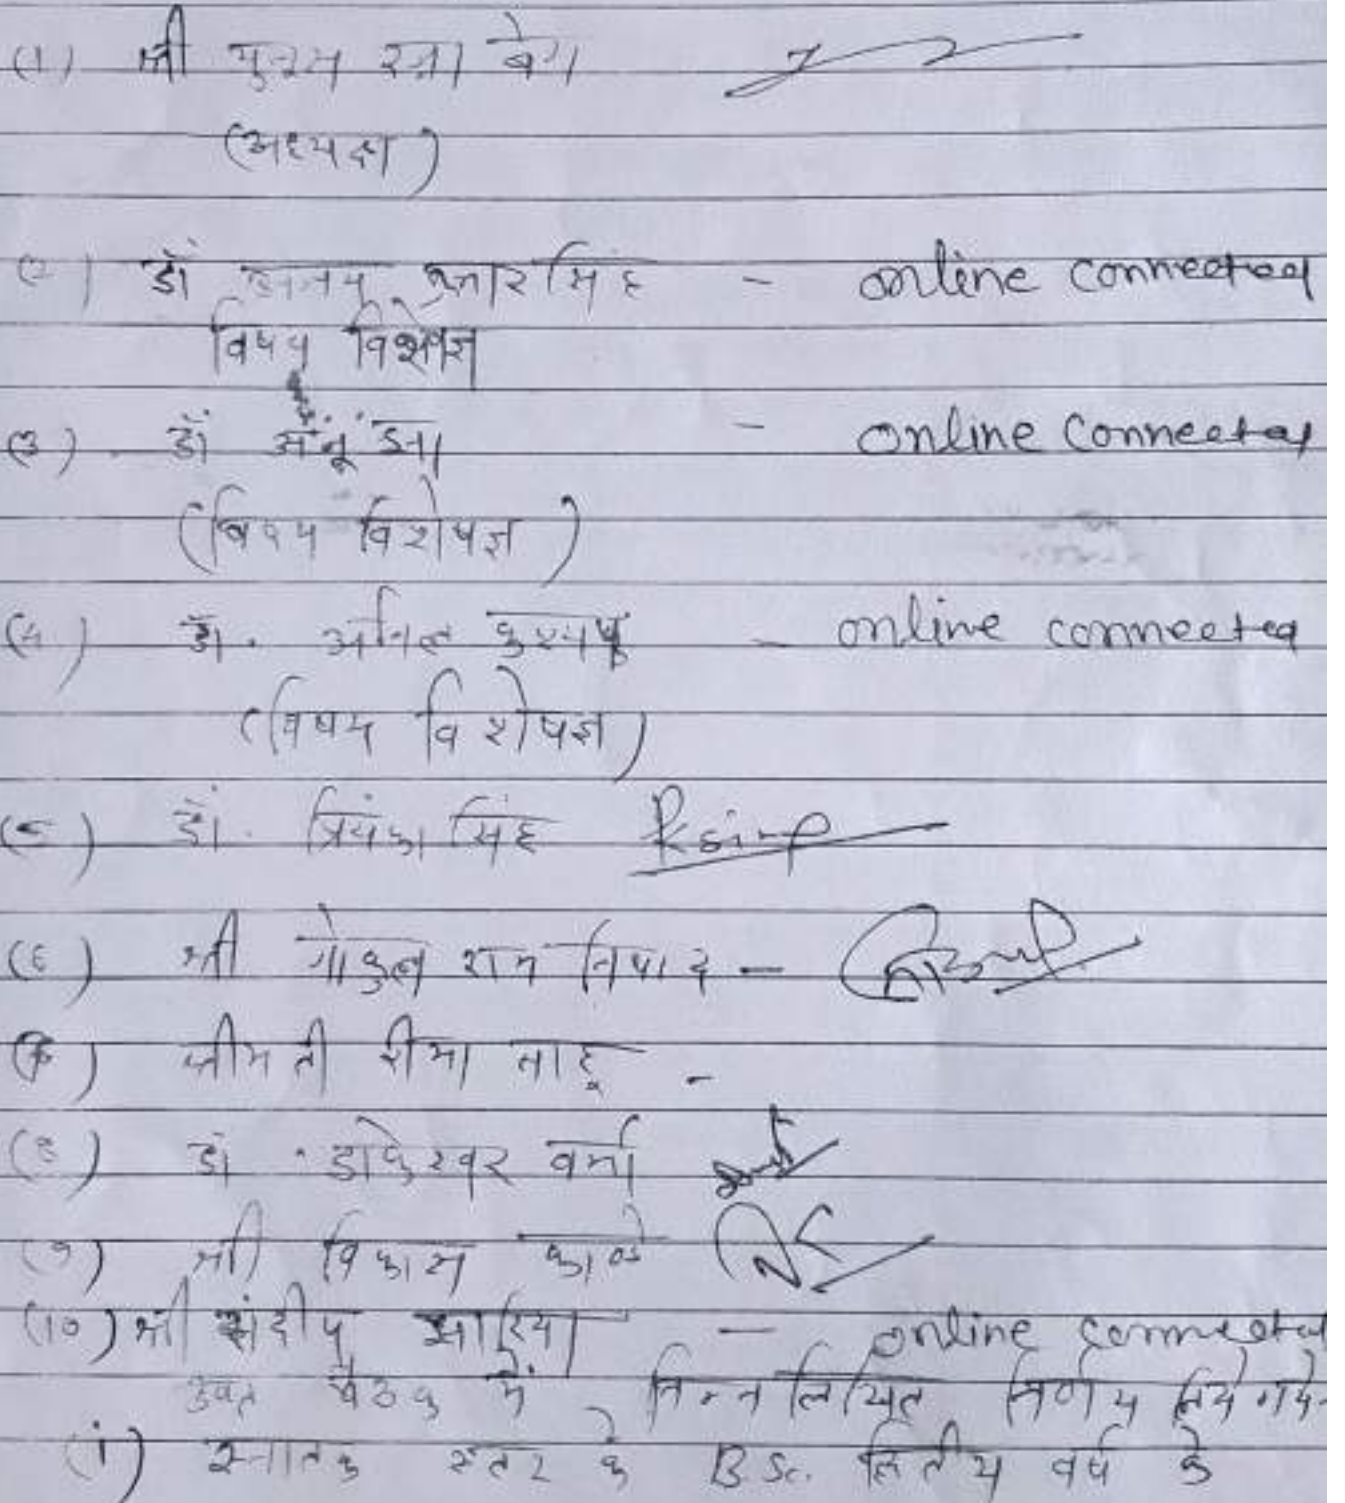 (1) श्री युनुस रजा बेग
(अध्यक्ष)
(2) डॉ कुमार सिंह - online connected
विषय विशेषज्ञ
(3) डॉ - online connected
(विषय विशेषज्ञ)
(4) डॉ. अनिल कश्यप - online connected
(विषय विशेषज्ञ)
(5) डॉ. प्रियंका सिंह
(6) श्री गोकुल राम निषाद -
(7) श्रीमती सीमा साहू -
(8) डॉ. डाकेश्वर वर्मा
(9) श्री विकास काळे
(10) श्री संदीप - online connected
उक्त बैठक में निम्नलिखित निर्णय लिये गये-
(i) स्नातक स्तर के B.Sc. द्वितीय वर्ष के